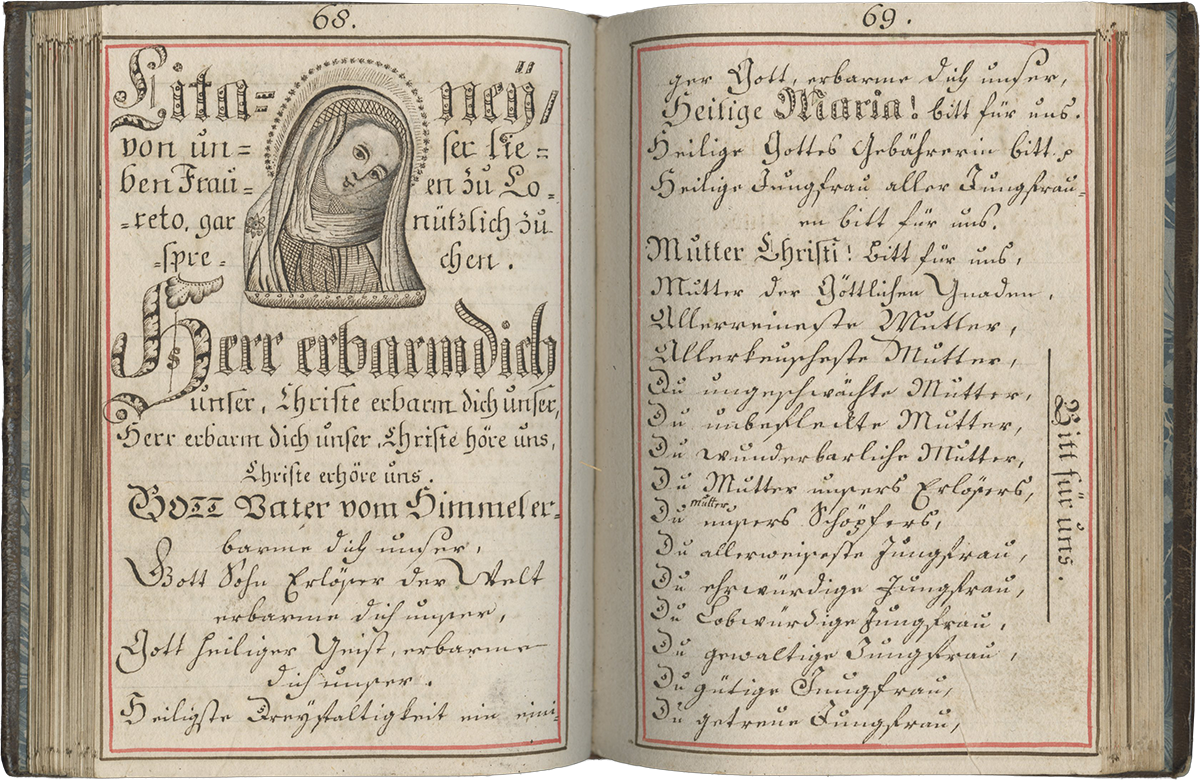 68.
Lita= neÿ,
von un= ser lie=
ben Frau= en zu Lo=
=reto, gar nützlich zu
=spre= chen.
Herr erbarm dich
unser, Christe erbarm dich unser,
Herr erbarm dich unser, Christe höre uns,
Christe erhöre uns.
Gott Vater vom Himmel er=
barme dich unser,
Gott Sohn Erlöser der Welt
erbarme dich unser,
Gott heiliger Geist, erbarme
dich unser.
Heiligste Dreyfaltigkeit ein eini=
69.
ger Gott, erbarme dich unser,
Heilige Maria! bitt für uns.
Heilige Gottes Gebährerin bitt.
Heilige Jungfrau aller Jungfrau=
en bitt für uns.
Mutter Christi! bitt für uns,
Mutter der Göttlichen Gnaden,
Allerreineste Mutter,
Allerkeuscheste Mutter,
Du ungeschwächte Mutter,
Du unbefleckte Mutter,
Du wunderbarliche Mutter,
Du Mutter unsers Erlösers,
Du mutter unsers Schöpfers,
Du allerweiseste Jungfrau,
Du ehrwürdige Jungfrau,
Du Lobwürdige Jungfrau,
Du gewaltige Jungfrau,
Du gütige Jungfrau,
Du getreue Jungfrau,
Bitt für uns.